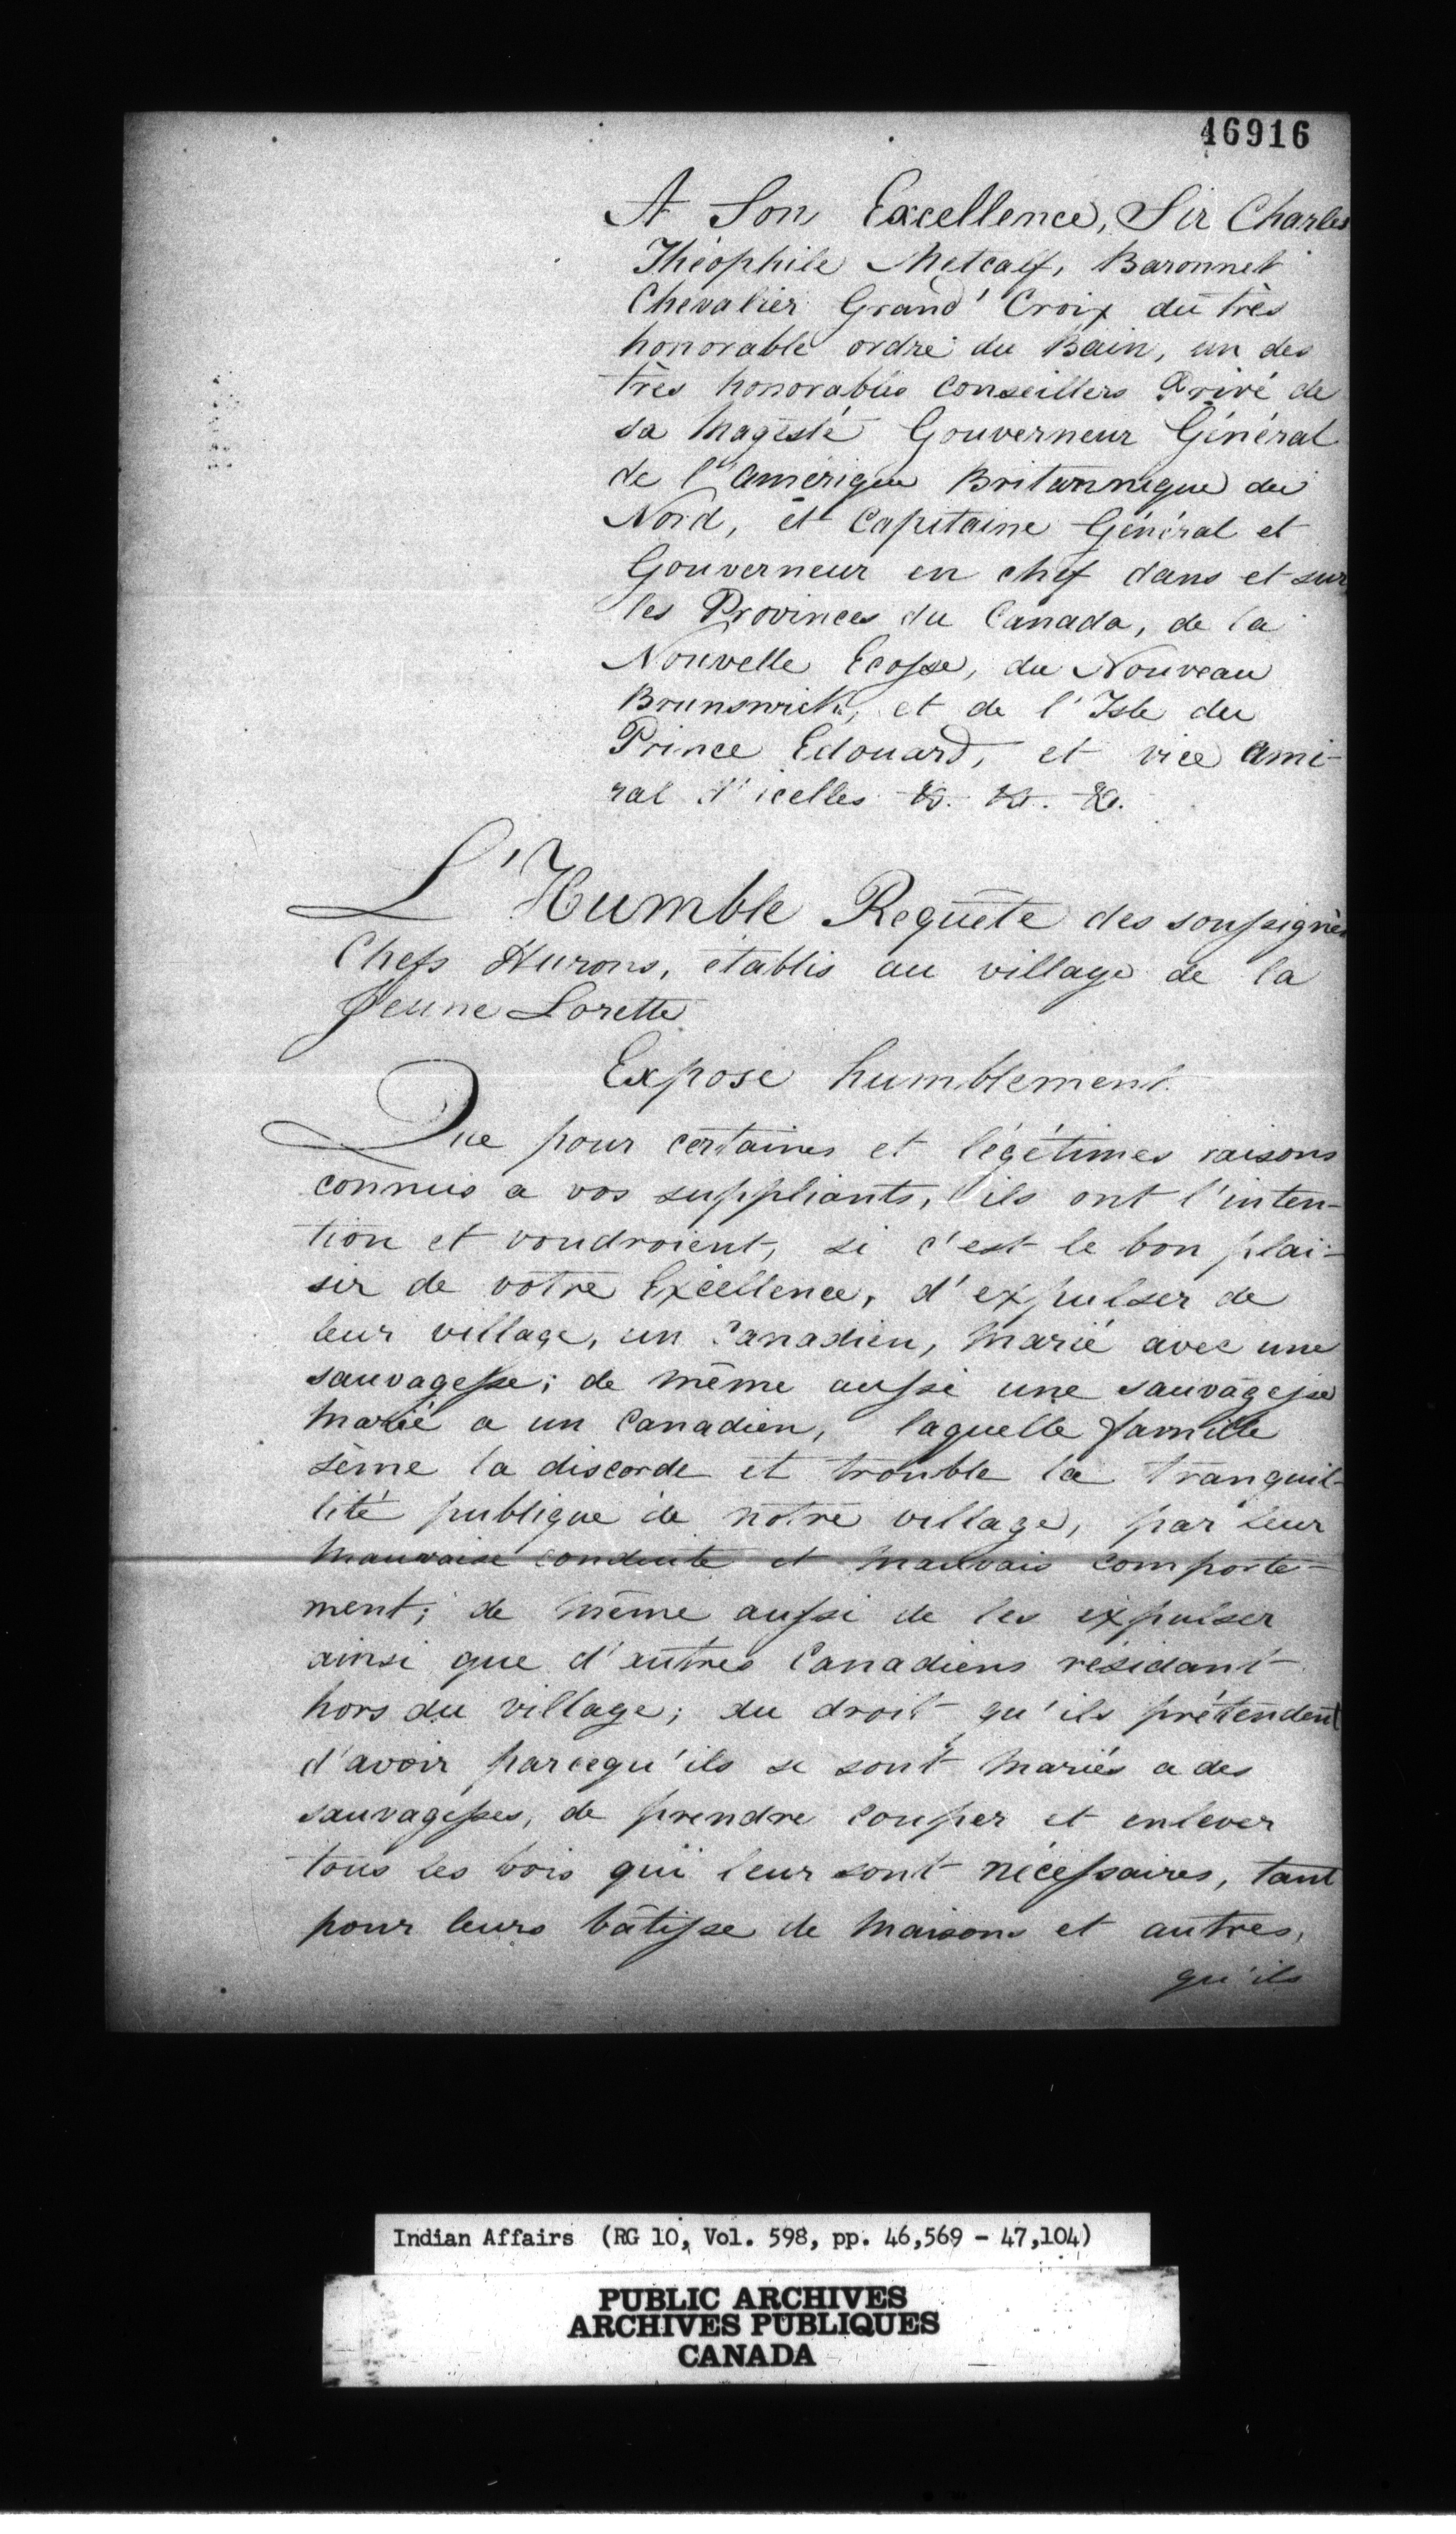 46916
A Son Excellence, Sir Charles
Théophile Metcalf, Baronnet
Chevalier Grand' Croix du très
honorable ordre du Bain, un des
très honorables Conseillers Privé de
sa Magesté Gouverneur Général
de l'Amérique Britannique du
Nord, et Capitaine Général et
Gouverneur en chef dans et sur
les Provinces du Canada, de la
Nouvelle Ecosse, du Nouveau
Brunswick, et de l'Isle du
Prince Edouard, et vice Ami-
ral d'icelles &c. &c. &c.
L'Humble Requête des soussignés
Chefs Hurons, établis au village de la
Jeune Lorette
Expose humblement
Que pour certaines et légétimes raisons
connus a vos suppliants, ils ont l'inten-
tion et voudroient, si c'est le bon plai-
sir de votre Excellence, d'expulser de
leur village, un Canadien, Marié avec une
sauvagesse; de même aussi une sauvagesse
Marié a un Canadien, laquelle famille
sème la discorde et trouble la tranquil-
lité publique de notre village, par leur
Mauvaise conduite et Mauvais comporte-
ment; de même aussi de les expulser
ainsi que d'autres Canadiens résidant
hors du village; du droit qu'ils prétendent
d'avoir parcequ'ils se sont Mariés a des
sauvagesses, de prendre couper et enlever
tous les bois qui leur sont nécessaires, tant
pour leurs bâtisse de Maisons et autres,
qu'ils
Indian Affairs (RG 10, Vol. 598, pp. 46,569 - 47,104)
PUBLIC ARCHIVES
ARCHIVES PUBLIQUES
CANADA